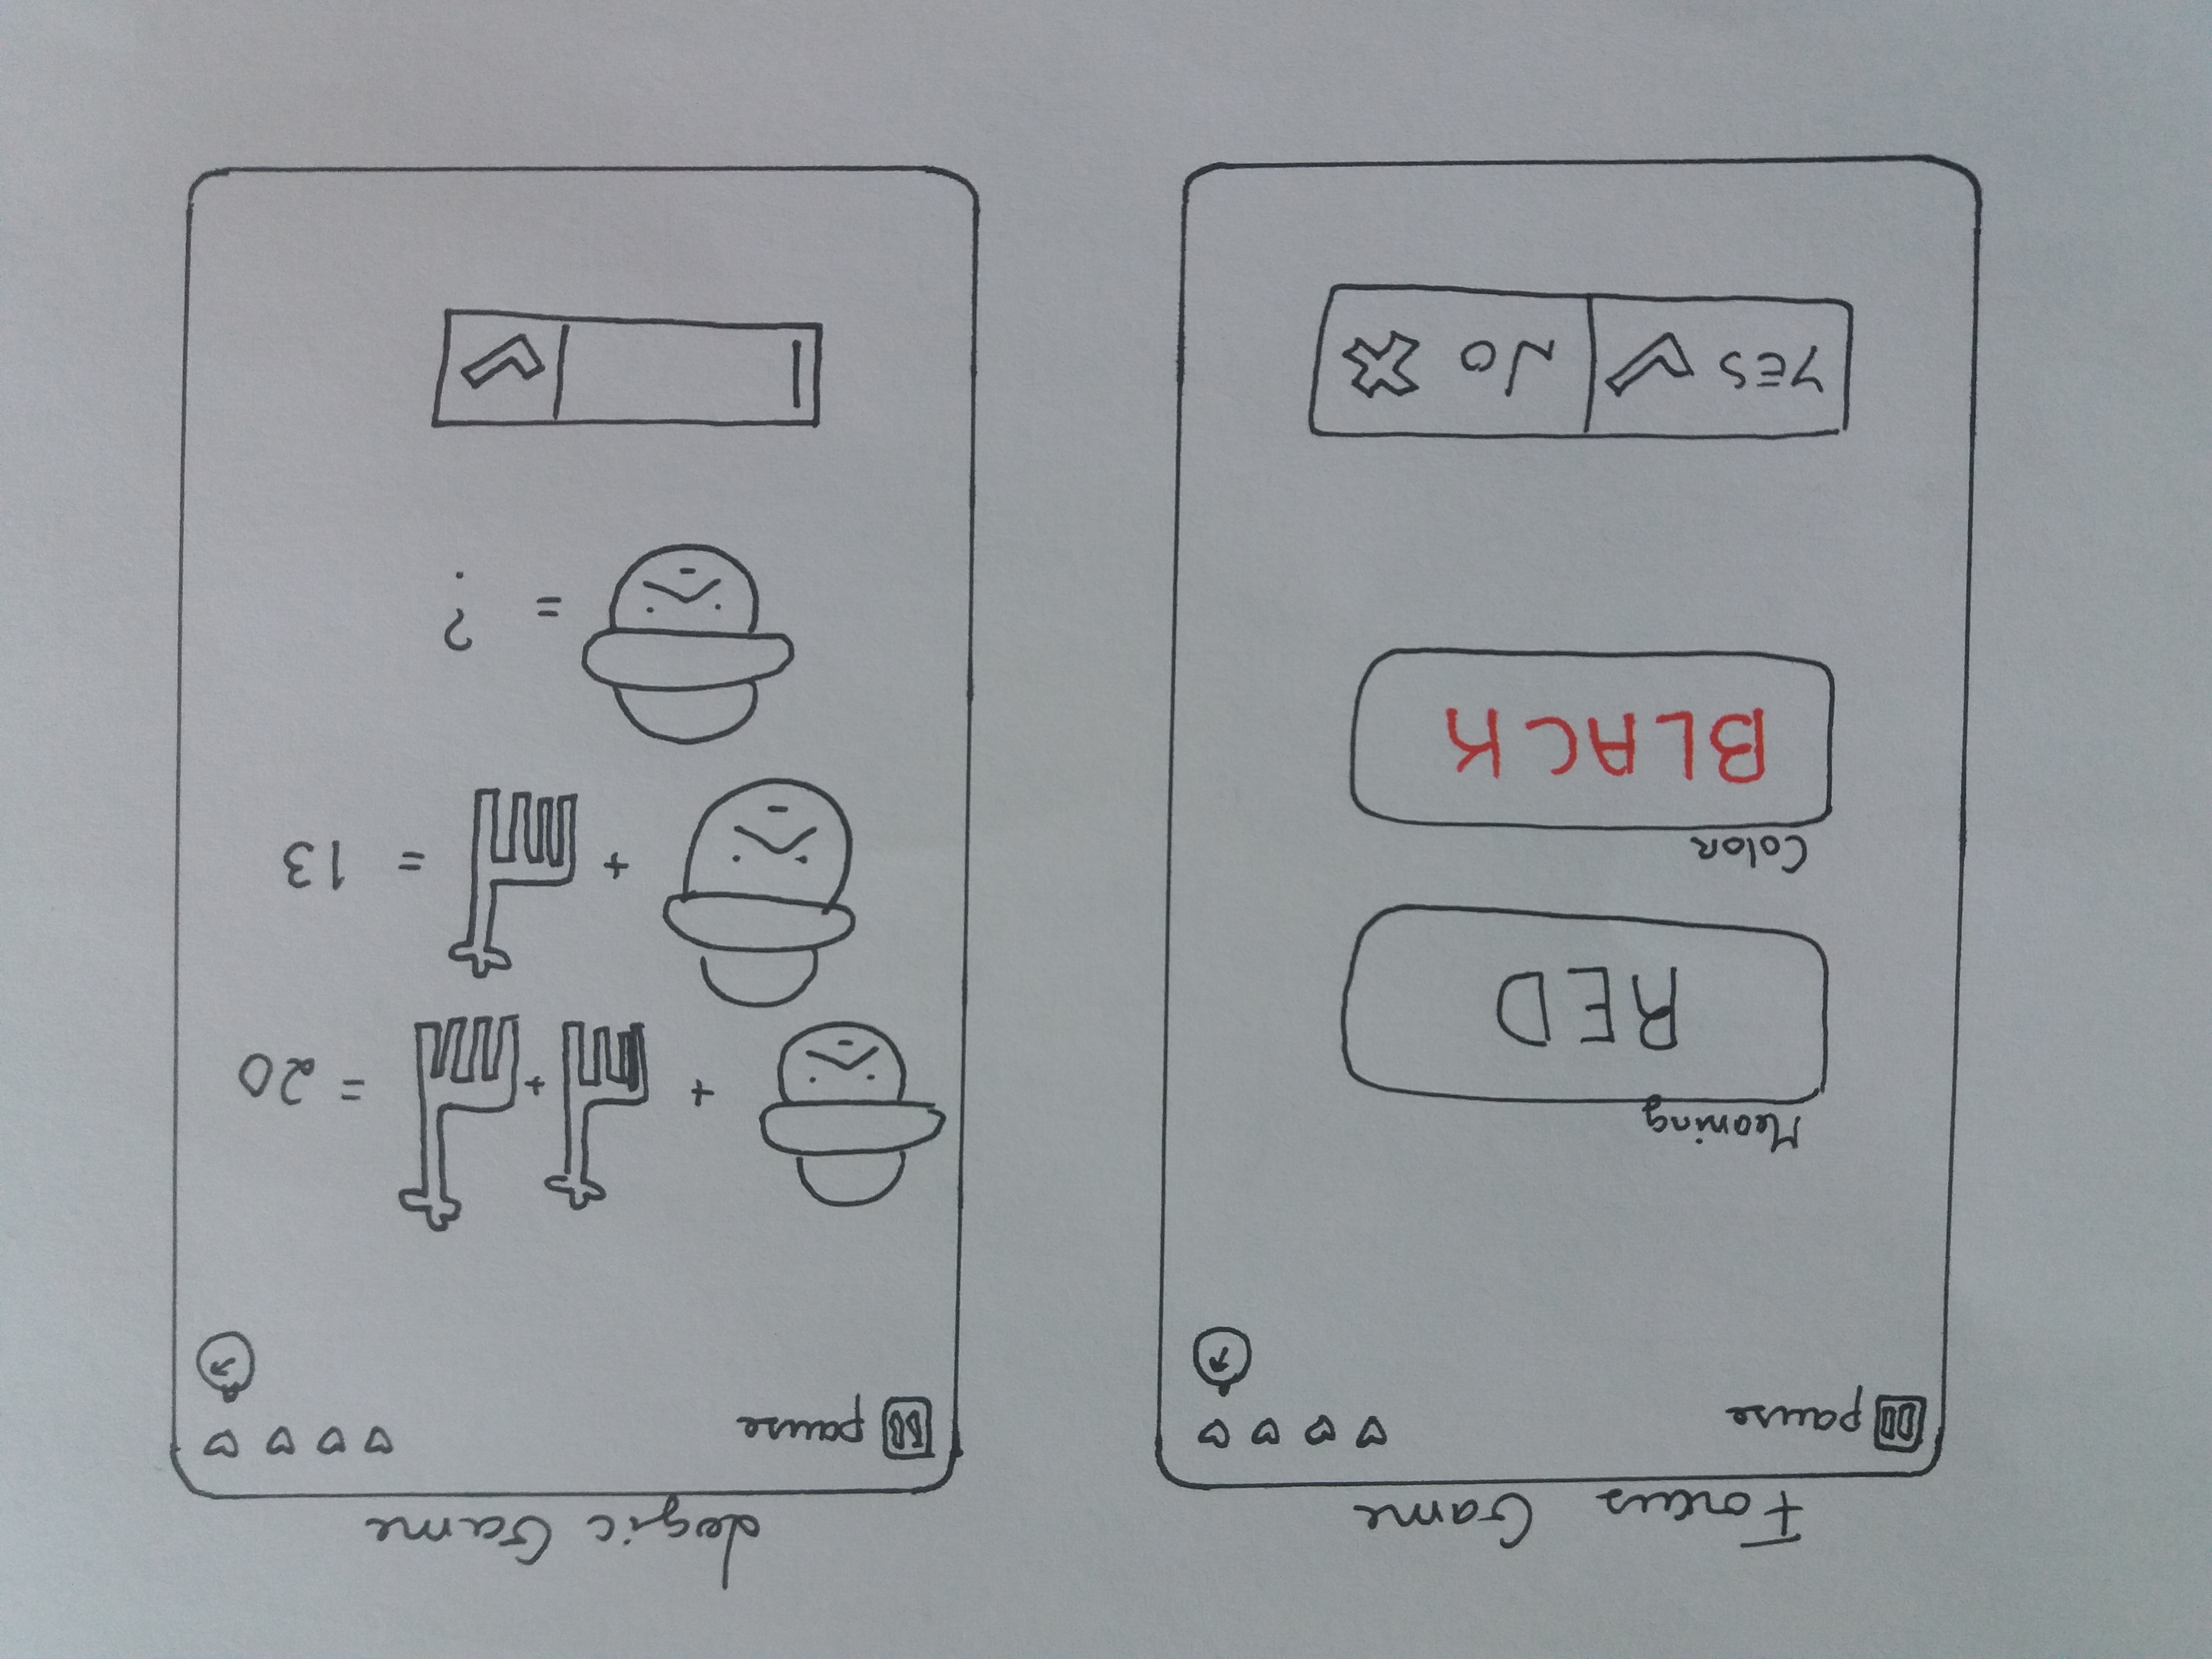 Focus Game
pause
Meaning
RED
Color
BLACK
YES NO
Logic Game
pause
+ + = 20
+ = 13
= ?